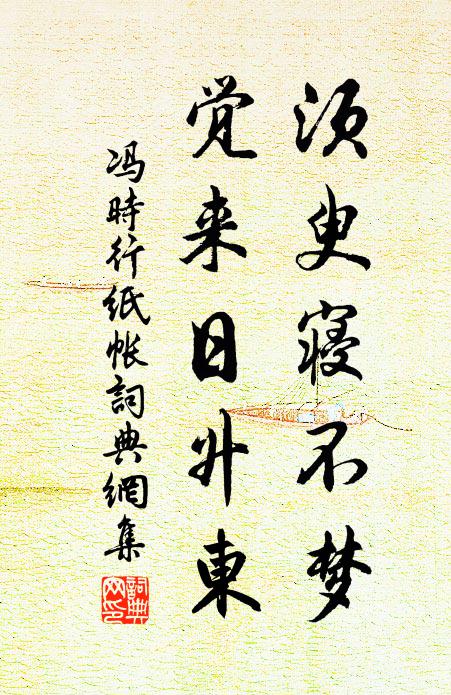 须臾寝不梦
觉来日升東
冯時行纸帐詞典網集
詞典網印